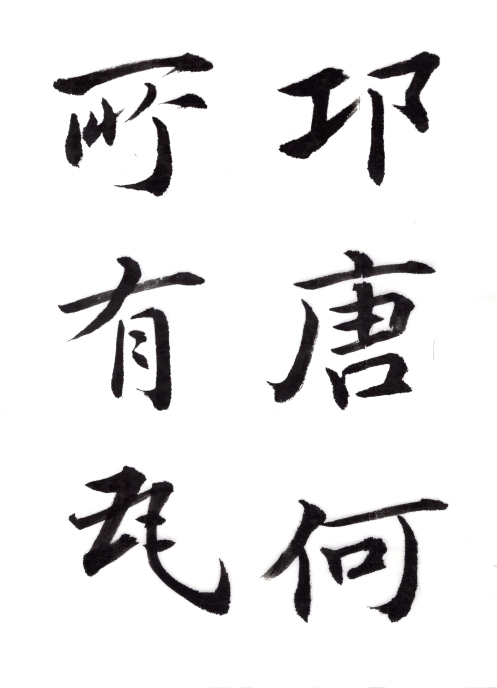 邛唐何
所有